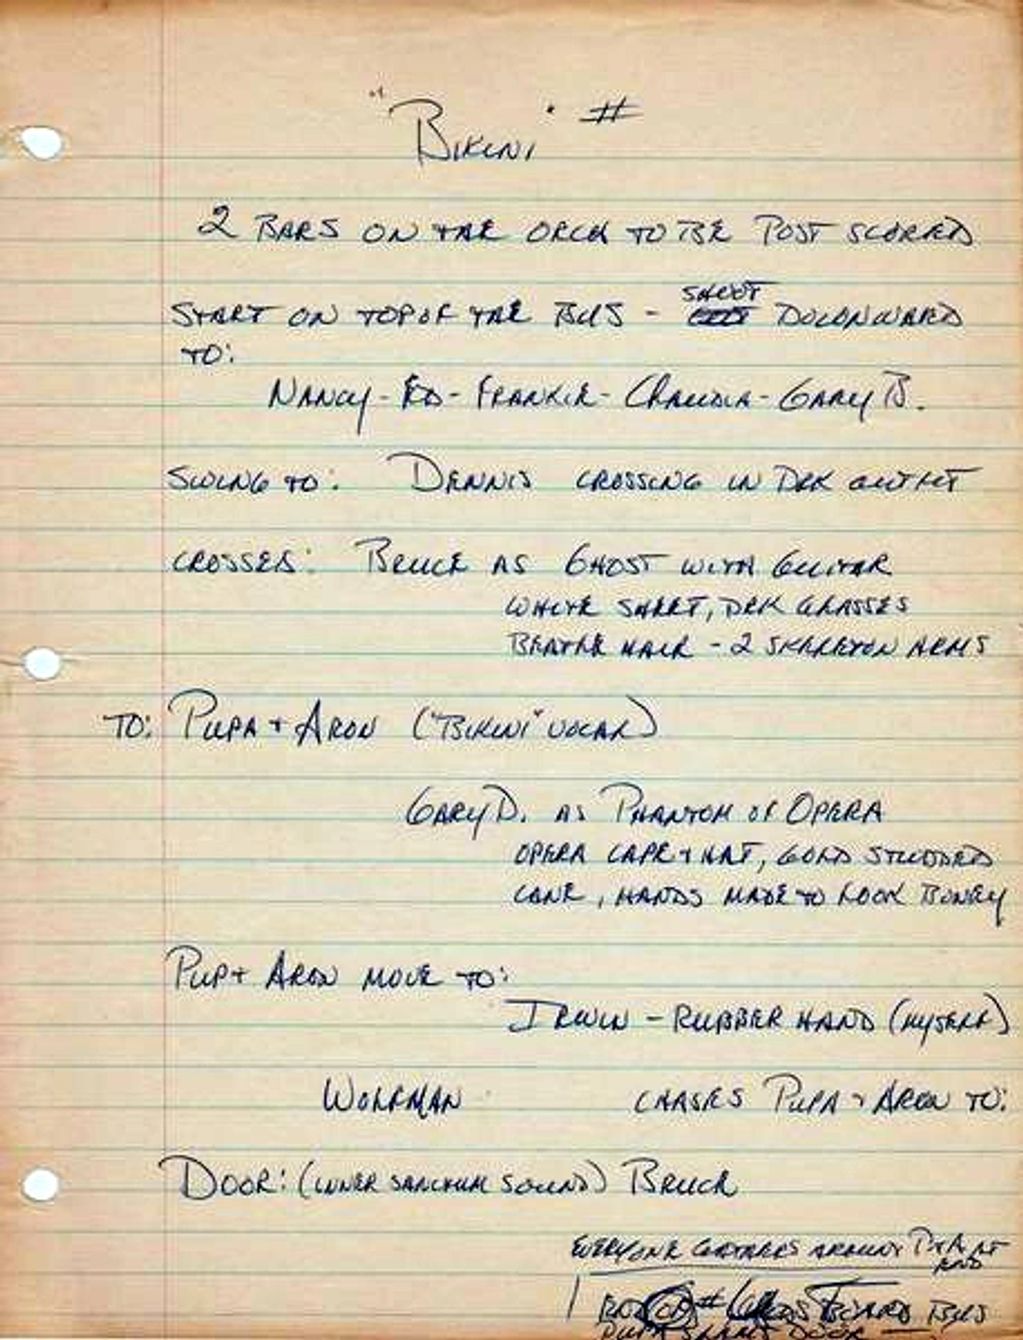 "Bikini" #
2 BARS ON THE ORCH TO BE POST SCORED
SHOOT
START ON TOP OF THE BUS - DOWNWARD
TO:
NANCY - ED - FRANKIE - CLAUDIA - GARY B.
SWING TO: DENNIS CROSSING IN DRK OUTFIT
CROSSES: BRUCE AS GHOST WITH GUITAR
WHITE SHEET, DRK GLASSES
BEATLE HAIR - 2 SKELETON ARMS
TO: PUPA + ARON ("BIKINI" VOCAL)
GARY D. AS PHANTOM OF OPERA
OPERA CAPE + HAT, GOLD STUDDED
CANE, HANDS MADE TO LOOK BONEY
PUP + ARON MOVE TO:
IRWIN - RUBBER HAND (MYSELF)
WOLFMAN CHASES PUPA + ARON TO:
DOOR: (INNER SANCTUM SOUND) BRUCE
EVERYONE GATHERS AROUND P+A AT
END
# BOARD BUS
PUPA SLAMS DOOR